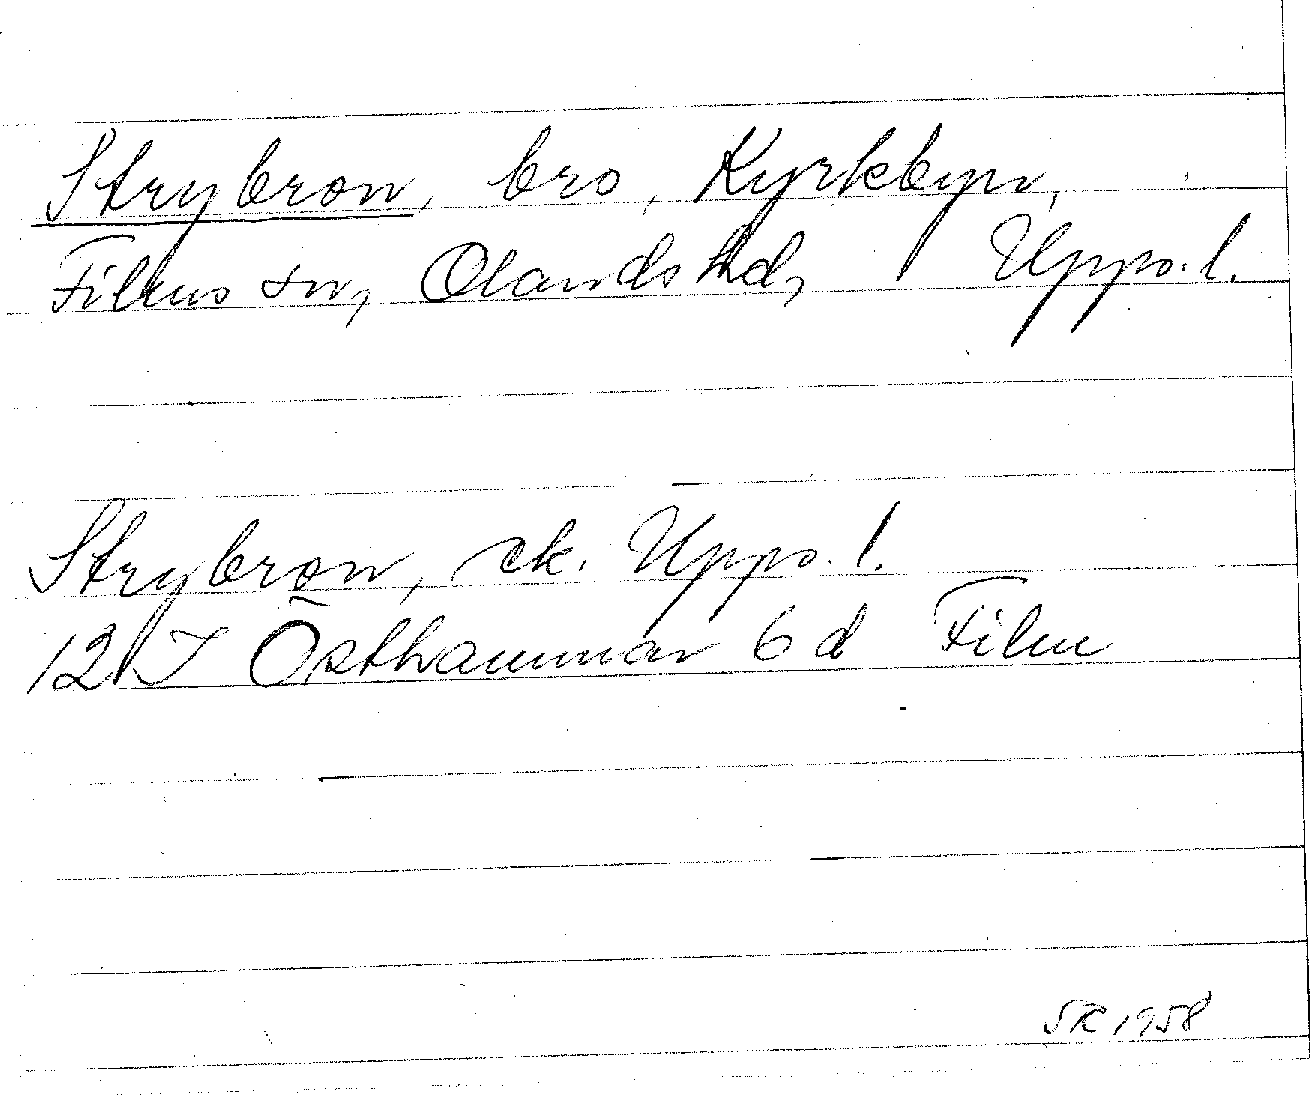 Strybron, bro, Kyrkbyn,
Films sn, Olands hd, Upps. l.
Strybron, ek. Upps. l.
12 I Östhammar 6 d Film
SK 1958